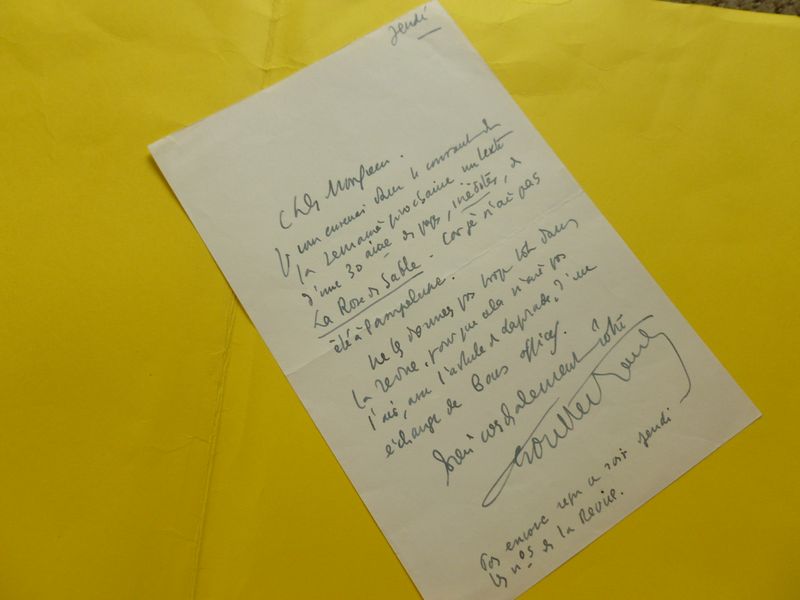 Jeudi
Cher Monsieur.
Je vous enverrai dans le courant de
la semaine prochaine un texte
d'une 30 aine de pages, inédites, de
La Rose de Sable. Car je n'ai pas
été à Pampelune.
Ne les donnez pas trop tôt dans
la revue, pour que cela n'ait pas
l'air, avec l'article de Laprade, d'un
échange de bons offices.
Bien cordialement vôtre
Pas encore reçu ce soir jeudi
les nos de la Revue.